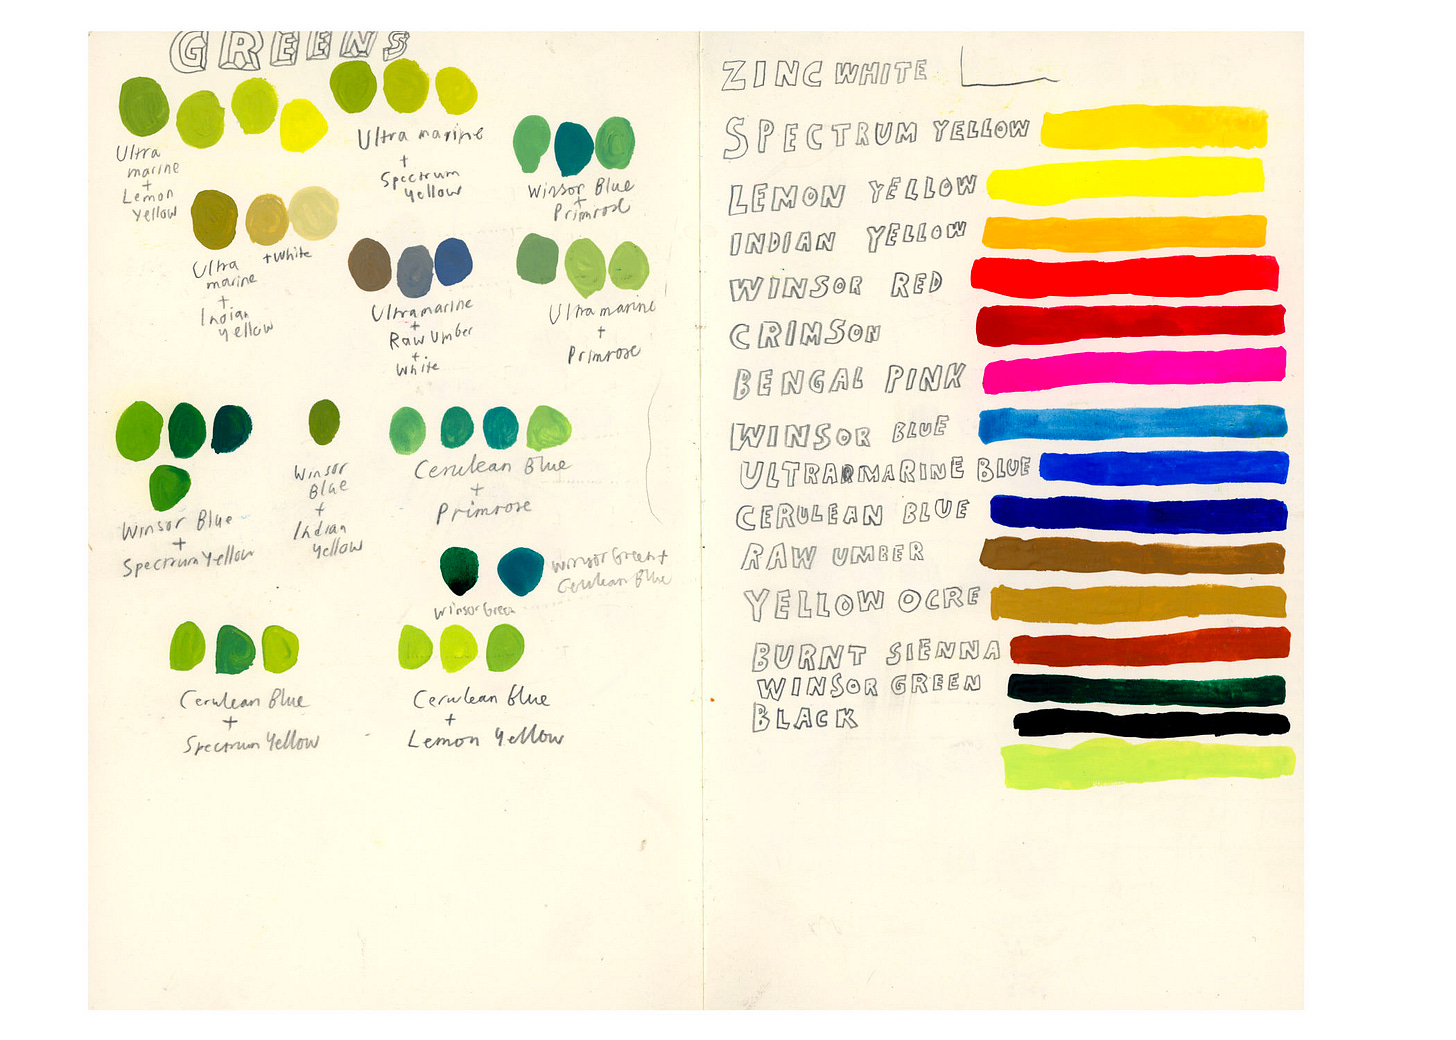 GREENS
Ultra
marine
+
Lemon
Yellow
Ultra marine
+
Spectrum
Yellow
Winsor Blue
+
Primrose
Ultra
marine
+
Indian
yellow
+ White
Ultramarine
+
Raw Umber
+
White
Ultramarine
+
Primrose
Winsor Blue
+
Spectrum Yellow
Winsor
Blue
+
Indian
Yellow
Cerulean Blue
+
Primrose
Winsor Green
Winsor Green +
Cerulean Blue
Cerulean Blue
+
Spectrum Yellow
Cerulean Blue
+
Lemon Yellow
ZINC WHITE
SPECTRUM YELLOW
LEMON YELLOW
INDIAN YELLOW
WINSOR RED
CRIMSON
BENGAL PINK
WINSOR BLUE
ULTRARMARINE BLUE
CERULEAN BLUE
RAW UMBER
YELLOW OCRE
BURNT SIENNA
WINSOR GREEN
BLACK